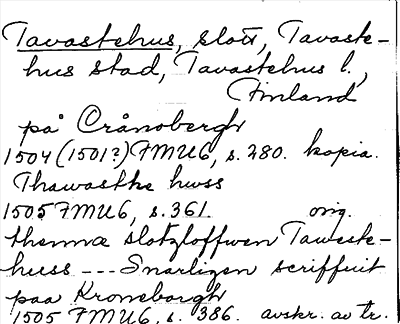 Tavastehus, slott, Tavaste-
hus stad, Tavastehus l.,
Finland
på Crånobergh
1504 (1501?) FMU6, s. 280. kopia.
Thawastke hwss
1505 FMU6, s. 361. orig.
thenna slotzloffwen Taweste-
huss --- Snarligen scriffuit
paa Kroneborgh
1505 FMU6, s. 386. avskr. av tr.